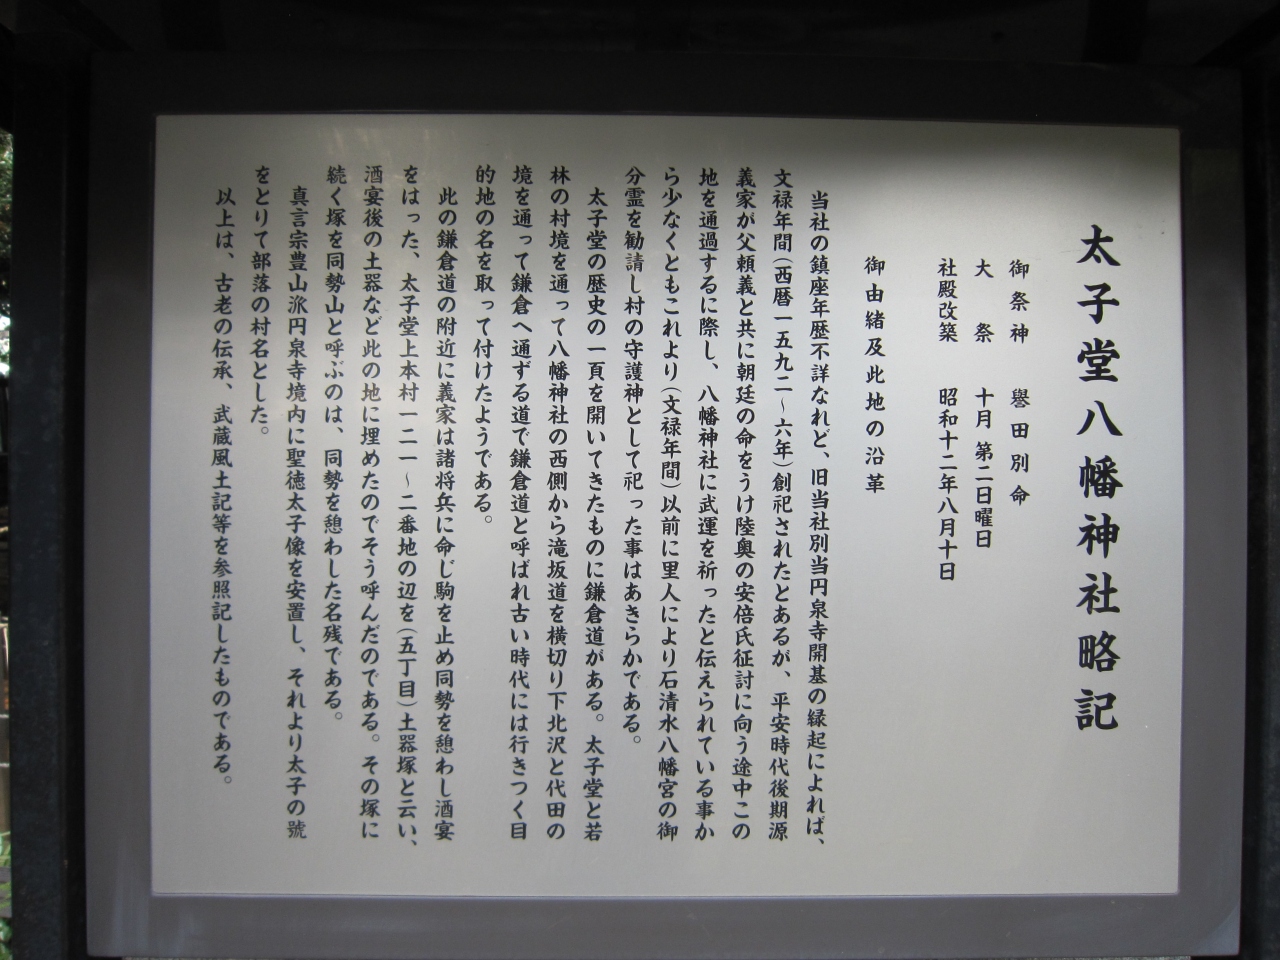 太子堂八幡神社略記
御祭神　譽田別命
大祭　十月 第二日曜日
社殿改築　昭和十二年八月十日
御由緒及此地の沿革
当社の鎮座年歴不詳なれど、旧当社別当円泉寺開基の縁起によれば、
文禄年間（西暦一五九二～六年）創祀されたとあるが、平安時代後期源
義家が父頼義と共に朝廷の命をうけ陸奥の安倍氏征討に向う途中この
地を通過するに際し、八幡神社に武運を祈ったと伝えられている事か
ら少なくともこれより（文禄年間）以前に里人により石清水八幡宮の御
分霊を勧請し村の守護神として祀った事はあきらかである。
太子堂の歴史の一頁を開いてきたものに鎌倉道がある。太子堂と若
林の村境を通って八幡神社の西側から滝坂道を横切り下北沢と代田の
境を通って鎌倉へ通ずる道で鎌倉道と呼ばれ古い時代には行きつく目
的地の名を取って付けたようである。
此の鎌倉道の附近に義家は諸将兵に命じ駒を止め同勢を憩わし酒宴
をはった、太子堂上本村一二一～二番地の辺を（五丁目）土器塚と云い、
酒宴後の土器など此の地に埋めたのでそう呼んだのである。その塚に
続く塚を同勢山と呼ぶのは、同勢を憩わした名残である。
真言宗豊山派円泉寺境内に聖徳太子像を安置し、それより太子の號
をとりて部落の村名とした。
以上は、古老の伝承、武蔵風土記等を参照記したものである。